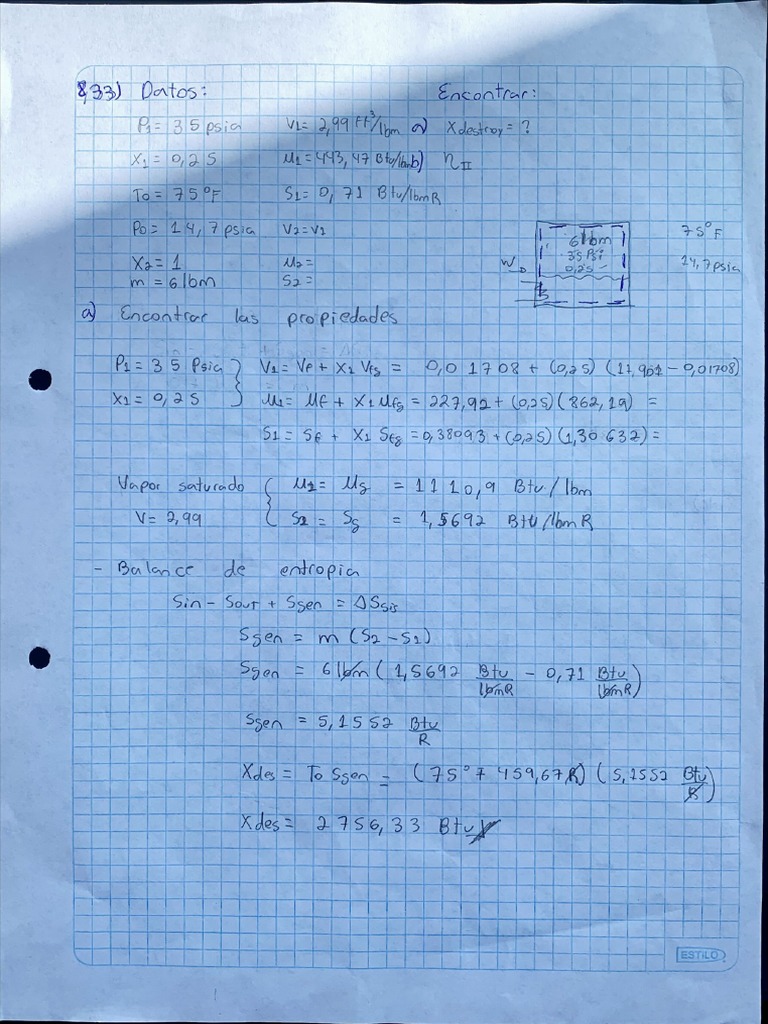 8,33) Datos: Encontrar:
P1 = 35 psia V1 = 2,99 ft³/lbm a) Xdestroy = ?
X1 = 0,25 u1 = 443,47 Btu/lbm b) ηII
To = 75°F S1 = 0,71 Btu/lbmR
Po = 14,7 psia V2 = V1
X2 = 1 u2 =
m = 6 lbm S2 =
6 lbm
35 PSi
0,25
W
75°F
14,7 psia
a) Encontrar las propiedades
P1 = 35 Psia } V1 = Vf + X1 Vfg = 0,01708 + (0,25) (11,901 - 0,01708)
X1 = 0,25 } u1 = uf + X1 ufg = 227,92 + (0,25) (862,19) =
S1 = Sf + X1 Sfg = 0,38093 + (0,25) (1,30632) =
Vapor saturado { u2 = ug = 1110,9 Btu/lbm
V = 2,99 { S2 = Sg = 1,5692 Btu/lbmR
- Balance de entropia
Sin - Sout + Sgen = ΔSsis
Sgen = m (S2 - S1)
Sgen = 6 lbm ( 1,5692 Btu/lbmR - 0,71 Btu/lbmR )
Sgen = 5,1552 Btu/R
Xdes = To Sgen = (75° + 459,67 R) (5,1552 Btu/R)
Xdes = 2756,33 Btu
ESTILO